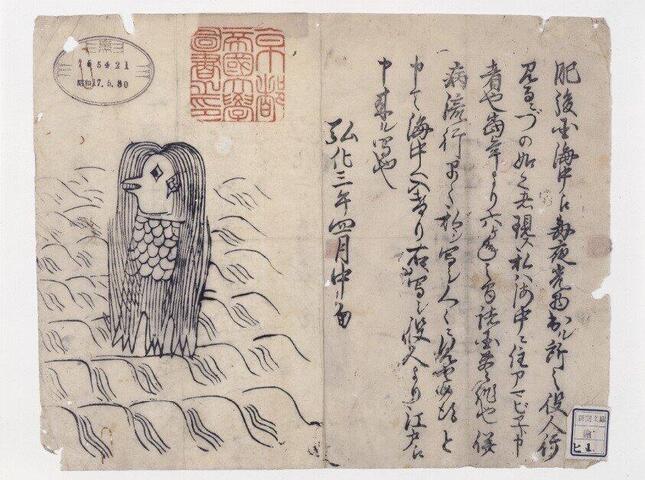 肥後国海中え毎夜光物出ル所之役人行
見るニづの如く者現ス私ハ海中ニ住アマビヱト申
者也当年より六ヶ年之間諸国豊作也併
病流行早々私ヲ写シ人々ニ見せ候得と
申て海中へ入けり右写シ役人より江戸え
申来ル写也
弘化三年四月中旬
京都
帝國大學
圖書之印
昭和17.5.30
新聞文庫